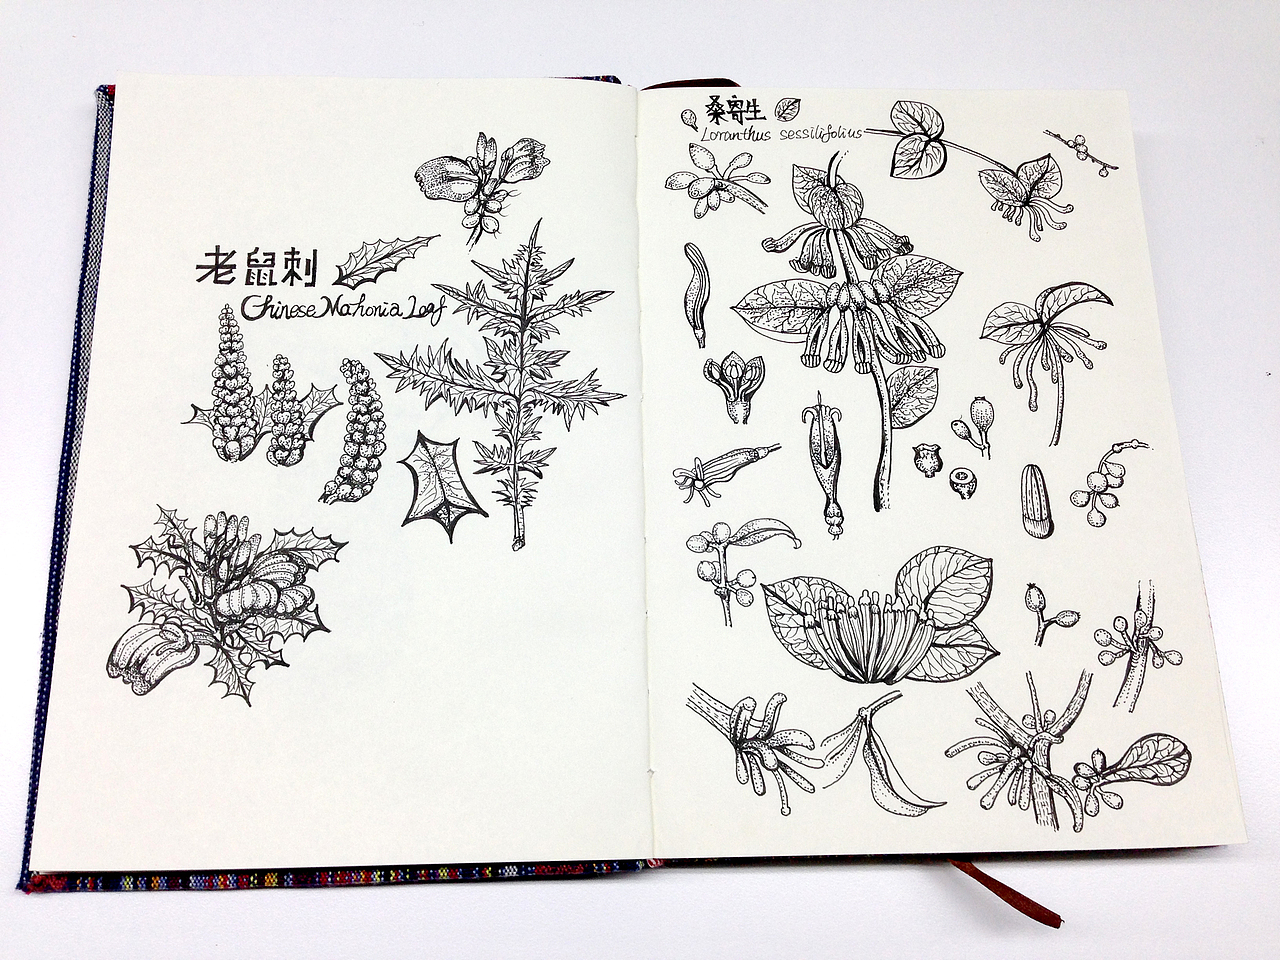 老鼠刺
Chinese Mahonia Leaf
桑寄生
Loranthus sessilifolius